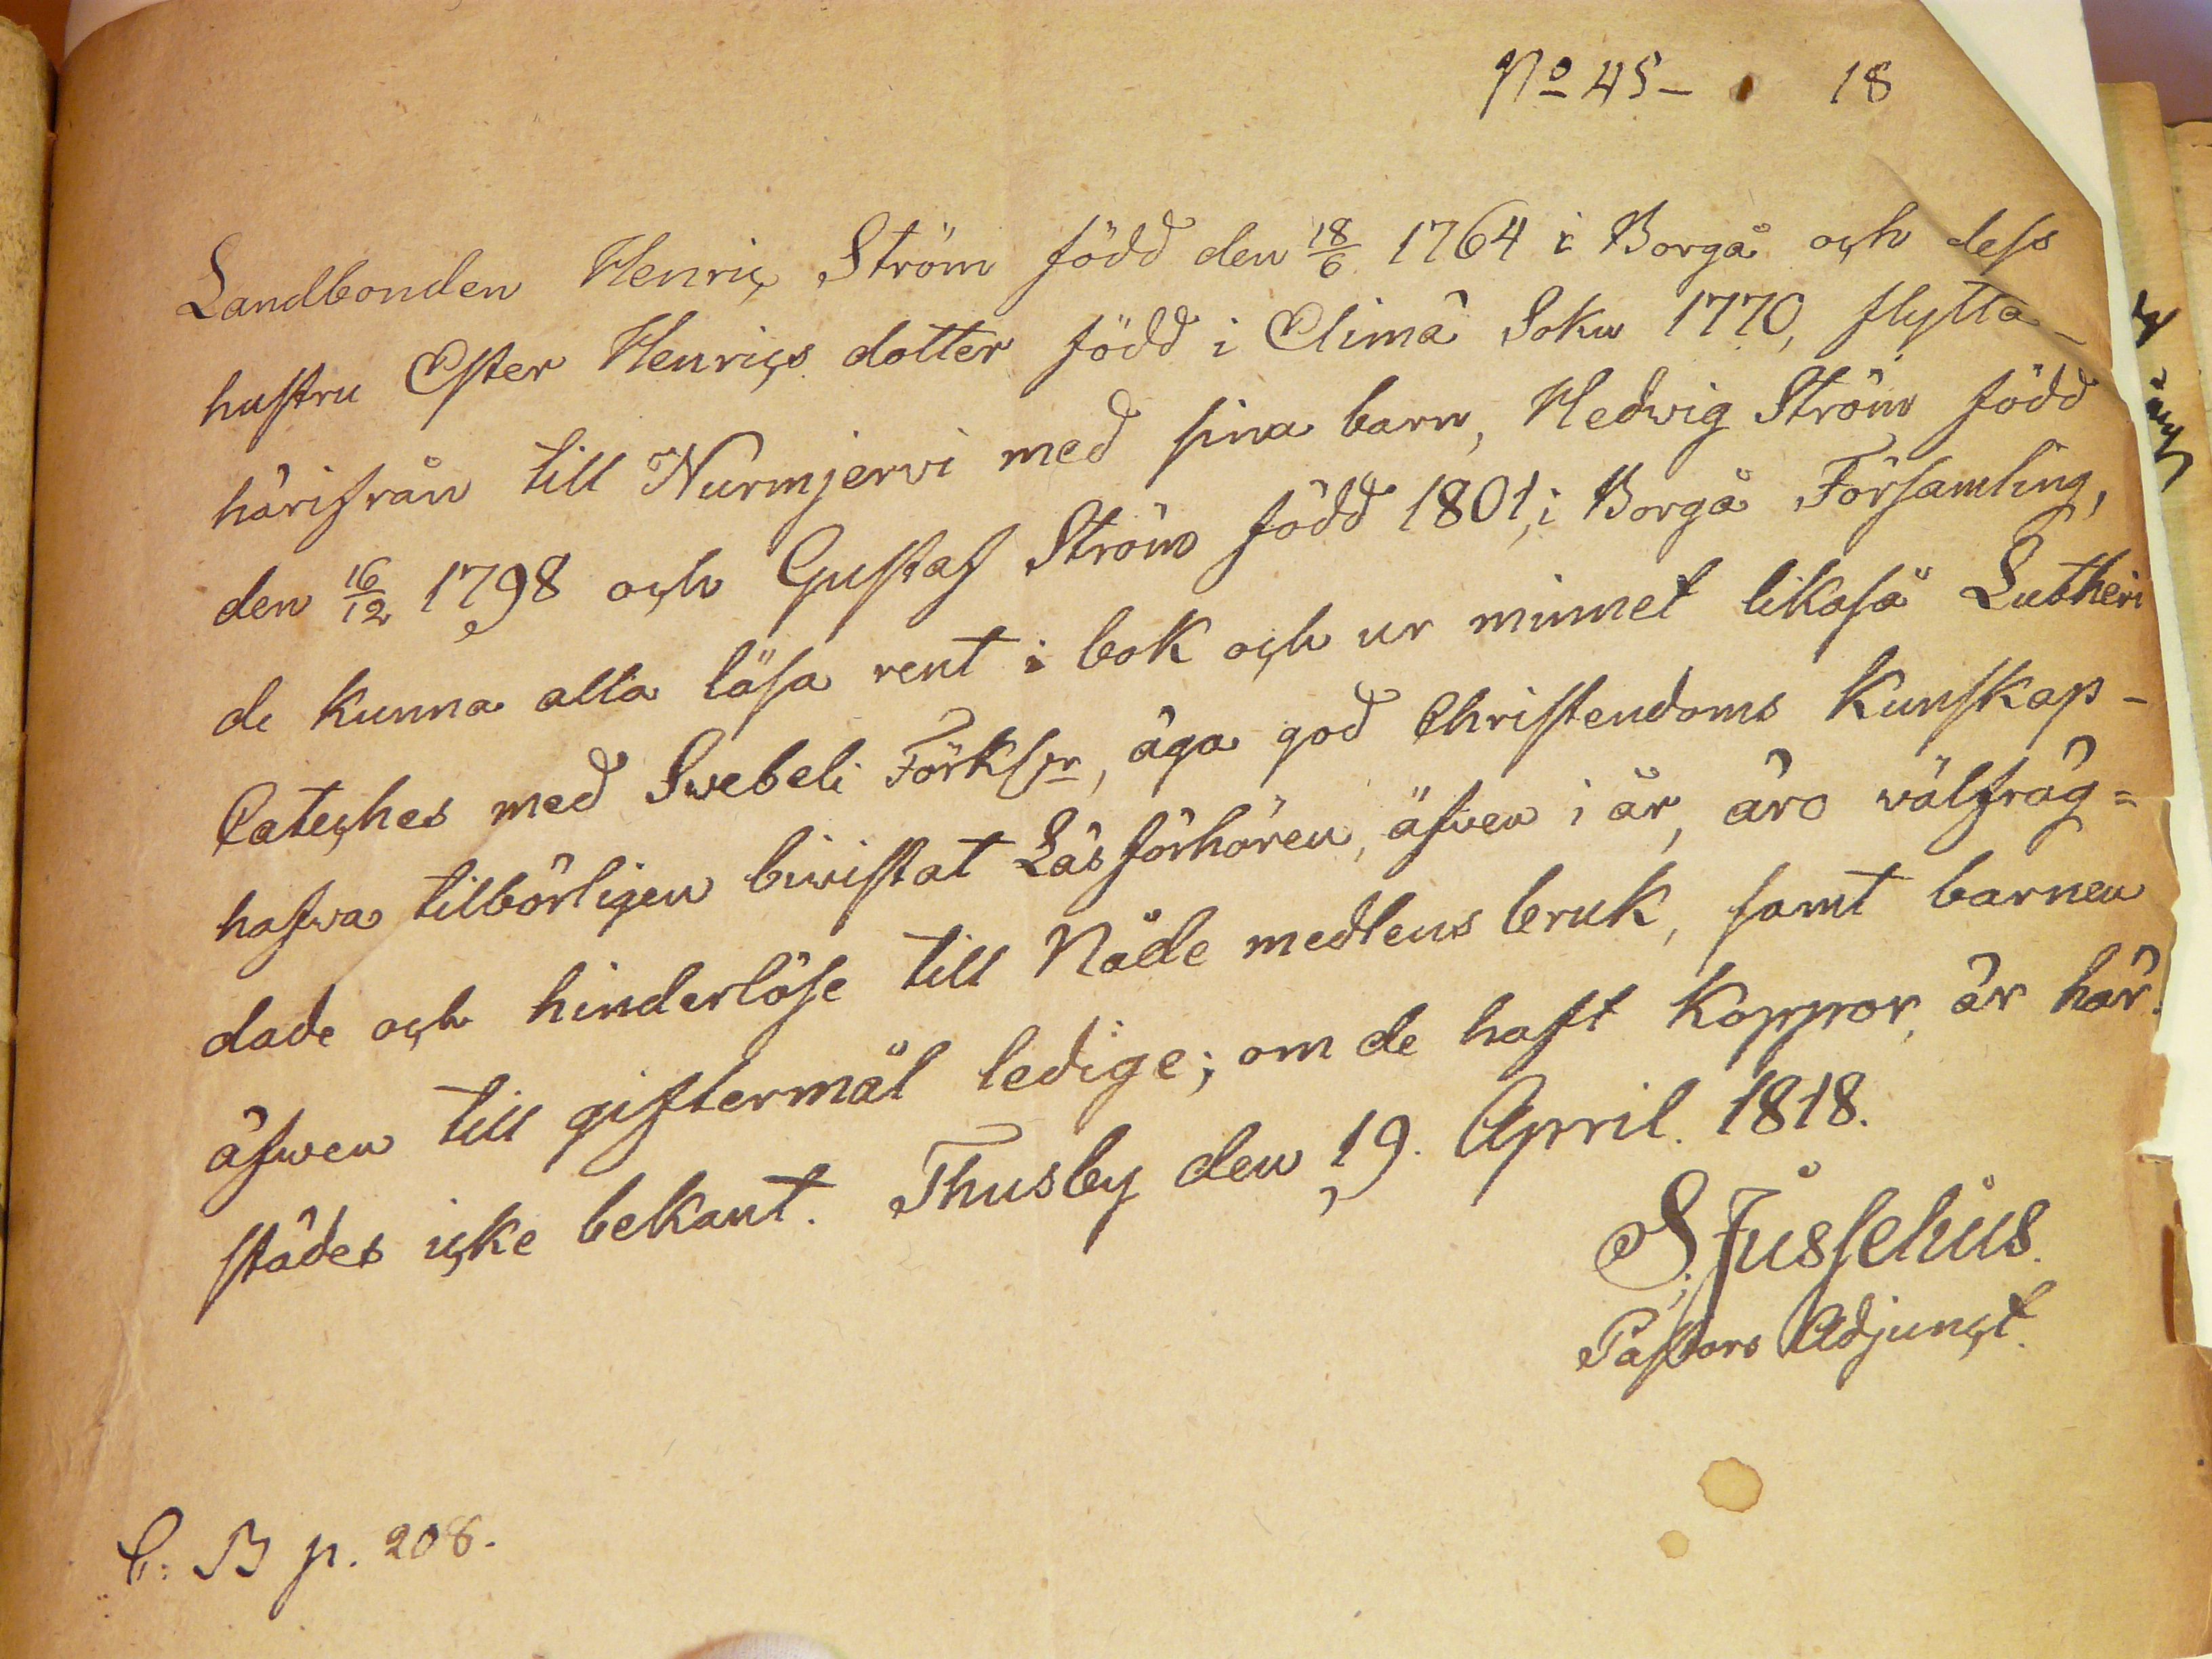 No 45- 18
Landbonden Henric Ström född den 18/6 1764 i Borgå och dess
hustru Ester Henrics dotter född i Elimä Sokn 1770, flytta
härifrån till Nurmjervi med sina barn, Hedvig Ström född
den 16/12 1798 och Gustaf Ström född 1801, i Borgå Församling,
de kunna alla läsa rent i bok och ur minnet likaså Lutheri
Cateches med Swebeli Förklr, äga god Christendoms Kunskap-
hafva tilbörligen biwistat Läsförhören, äfwen i år, äro wälfräg=
dade och hinderlöse till Nåde medlens bruk, samt barnen
äfwen till giftermål ledige; om de haft Koppor, är här
städes icke bekant. Thusby den 19. April. 1818.
S. Jusselius.
Pastors Adjunct.
C: B p. 208.